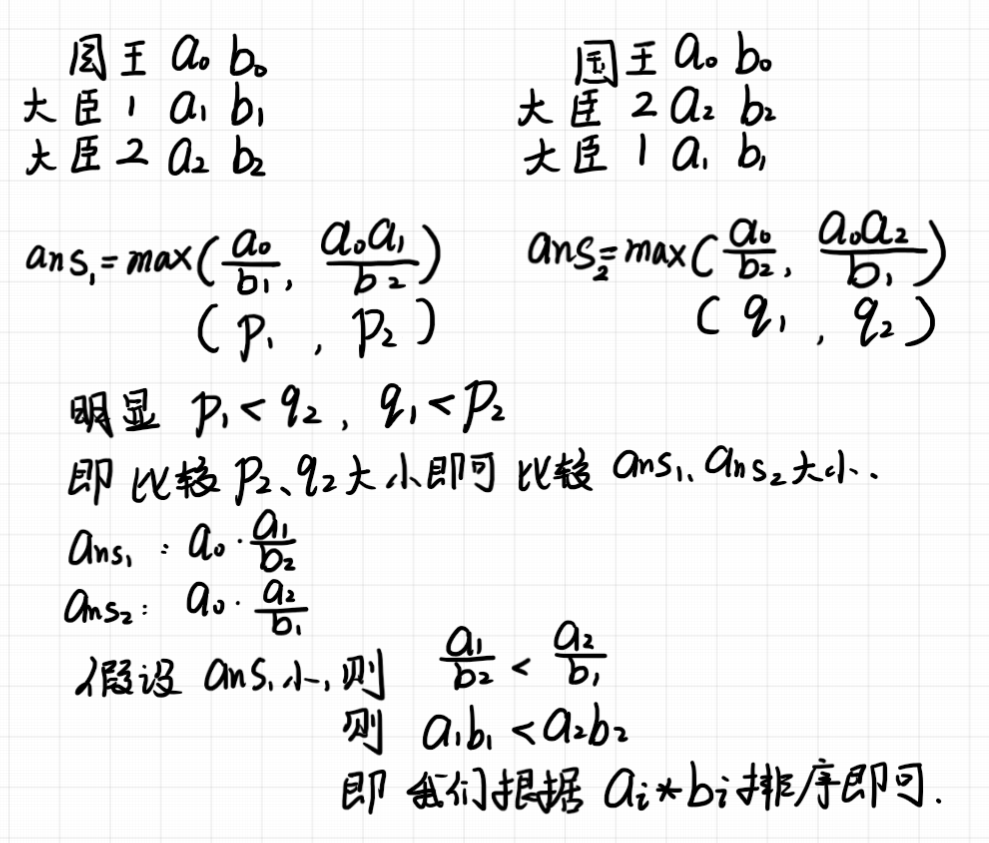 国王 a₀ b₀
大臣 1 a₁ b₁
大臣 2 a₂ b₂
国王 a₀ b₀
大臣 2 a₂ b₂
大臣 1 a₁ b₁
ans₁ = max(a₀/b₁, a₀a₁/b₂)
(p₁, p₂)
ans₂ = max(a₀/b₂, a₀a₂/b₁)
(q₁, q₂)
明显 p₁ < q₂, q₁ < p₂
即 比较 p₂、q₂大小即可 比较 ans₁、ans₂大小.
ans₁ : a₀ · a₁/b₂
ans₂ : a₀ · a₂/b₁
假设 ans₁小, 则 a₁/b₂ < a₂/b₁
则 a₁b₁ < a₂b₂
即 我们根据 aᵢ*bᵢ排序即可.